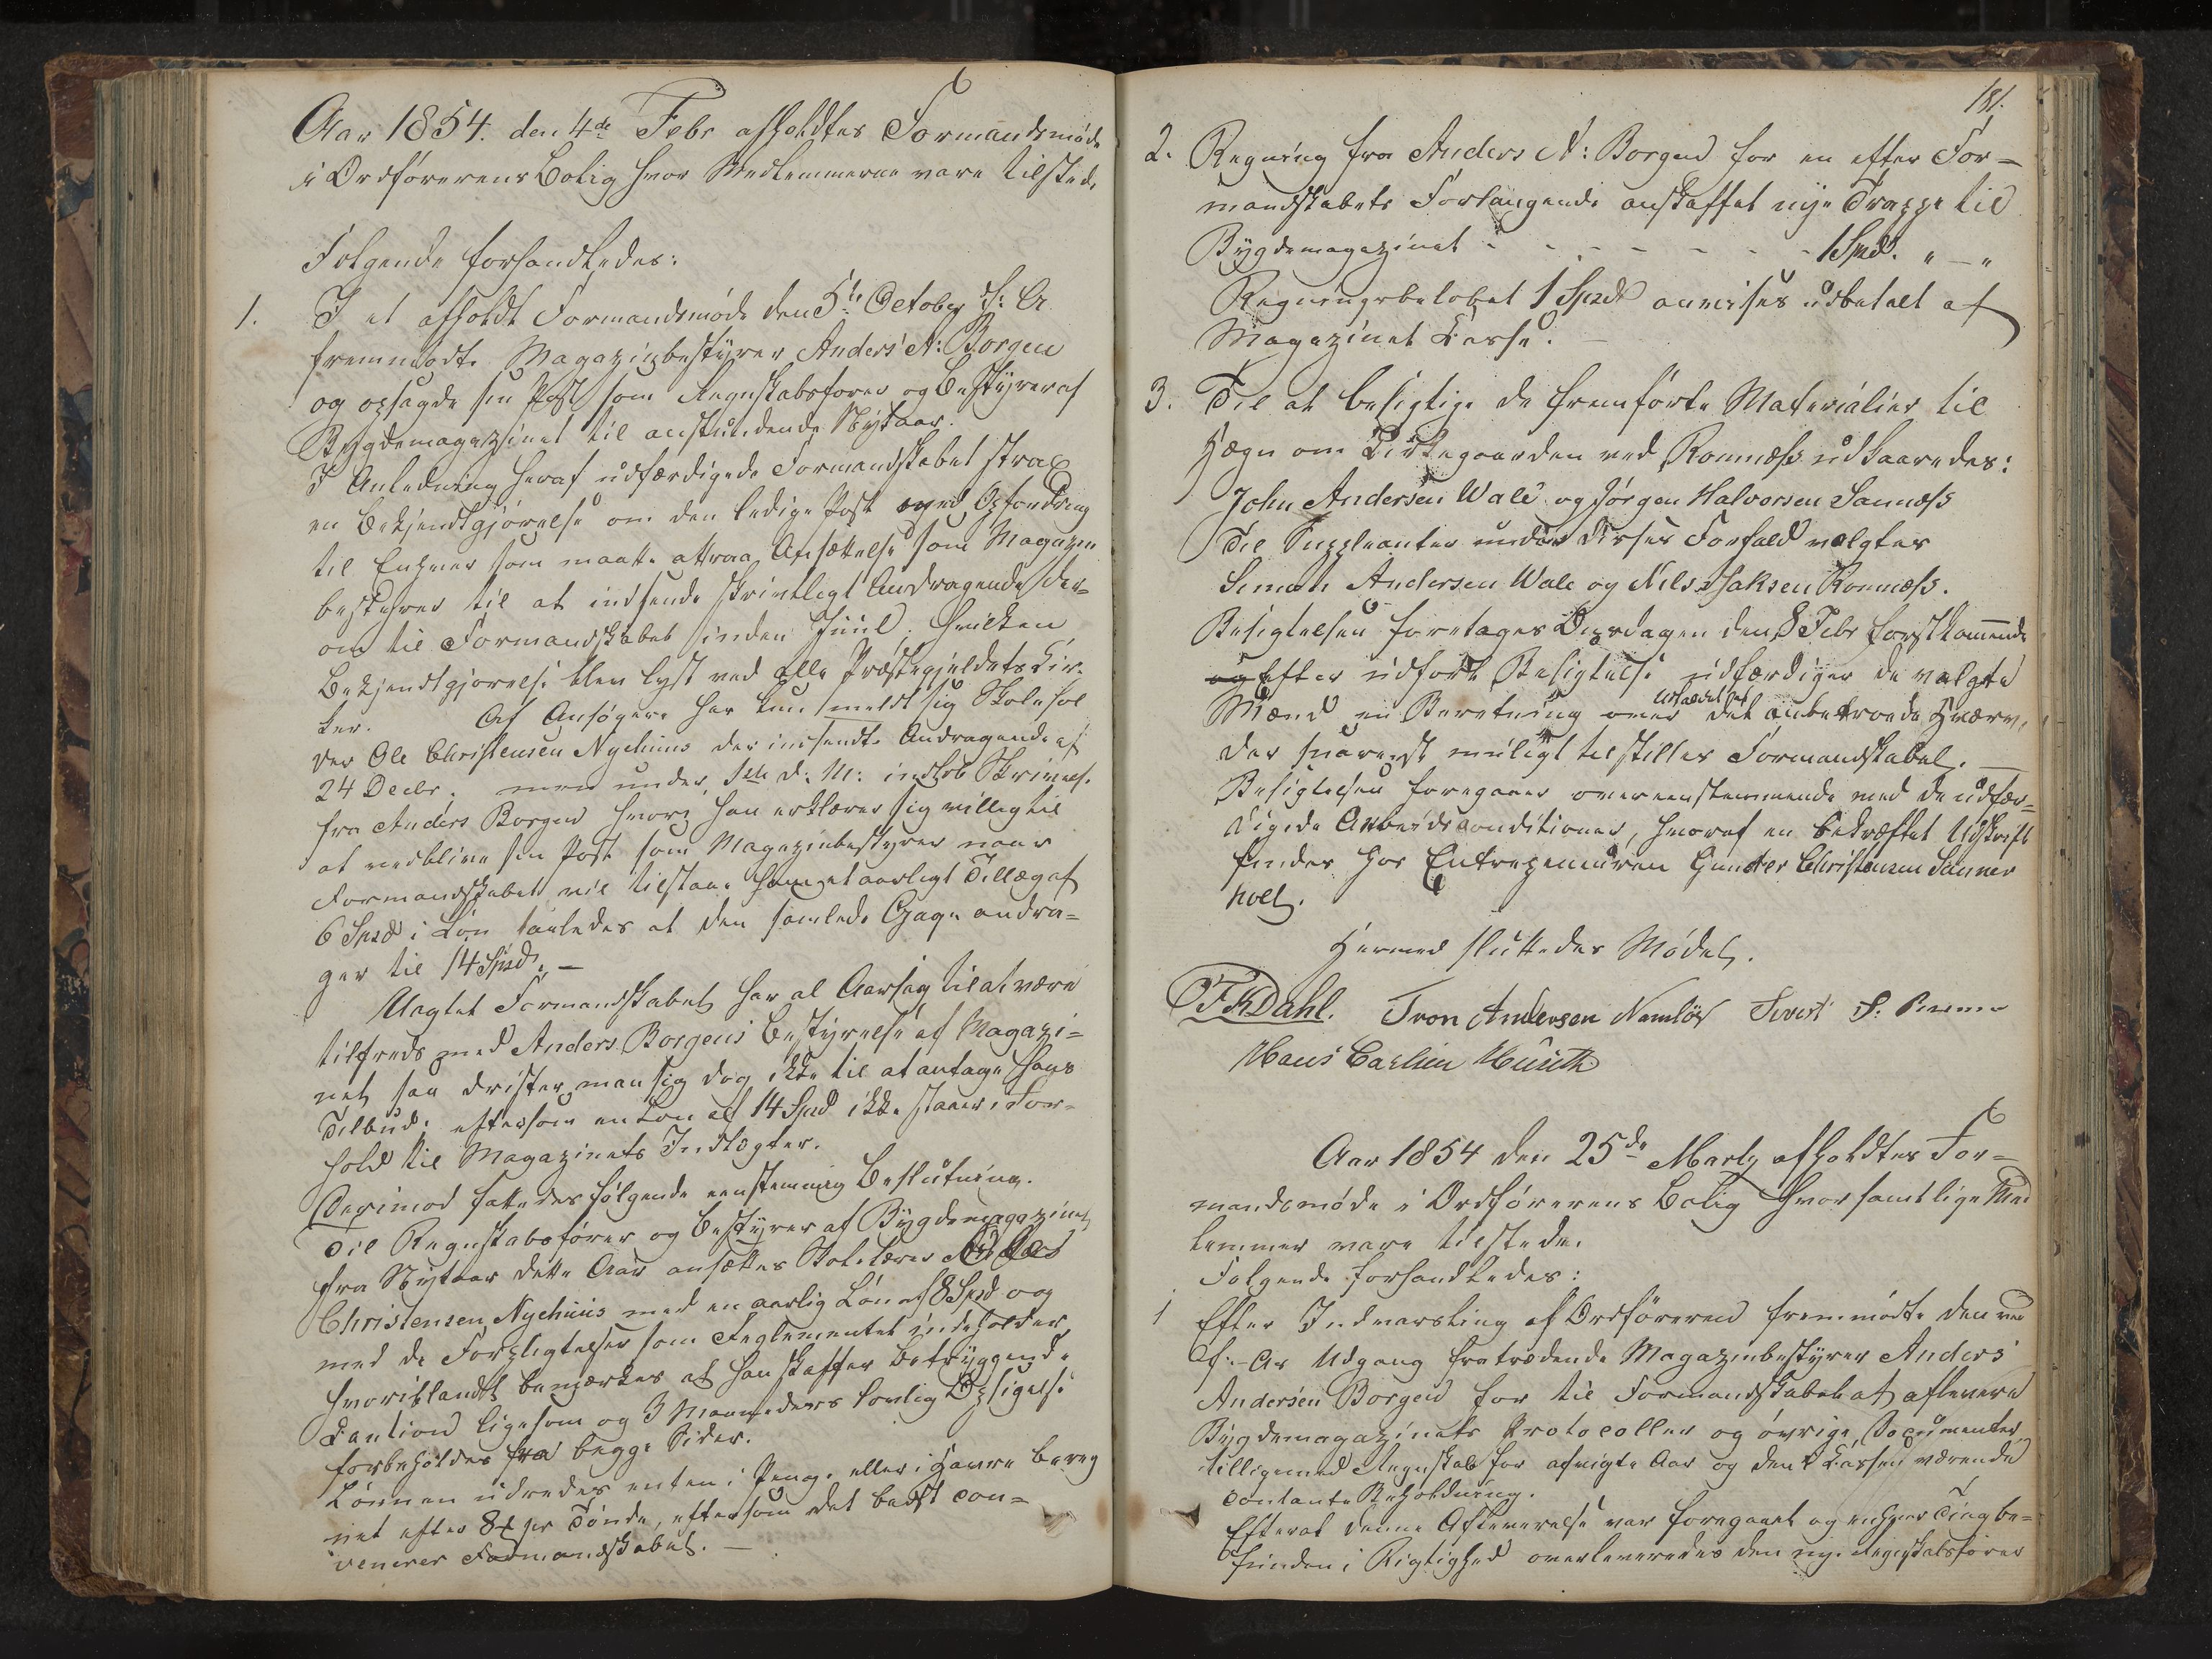 Aar 1854. den 4de Febr afholdtes Formandsmøde
i Ordførerens Bolig hvor Medlemmerne vare tilstede.
Følgende forhandledes:
1. I et afholdt Formandsmøde den 5te October f: A
fremmødte Magazinbestyrer Anders A: Borgen
og opsagde sin Post som Regnskabsfører og Bestyrer af
Bygdemagazinet til anstundende Nytaar.
I Anledning heraf udfærdigede Formandskabet strax
en Bekjendtgjørelse om den ledige Post med Opfordring
til Enhver som maatte attraa Ansættelse som Magazin
bestyrer til at indsende skriftligt Andragende der=
om til Formandskabet inden Juul, hvilken
Bekjendtgjørelse blev lyst ved alle Præstegjeldets Kir-
ker. Af Ansøgere har kun meldt sig Skolehol
der Ole Christensen Nyehuus der indsendte Andragende af
24 Decbr. men under 1ste d: M: indkom Skrivelse
fra Anders Borgen hvori han erklærer sig villig til
at vedblive sin Post som Magazinbestyrer naar
Formandskabet vil tilstaae ham et aarligt Tillæg af
6 Spd i Løn saaledes at den samlede Gage andra=
ger til 14 Spd. —
Uagtet Formandskabet har al Aarsag til at være
tilfreds med Anders Borgens Bestyrelse af Magazi=
net saa drister man sig dog ikke til at antage hans
Tilbud, eftersom en Løn af 14 Spd ikke staaer i For=
hold til Magazinets Indtægter.
Derimod fattedes følgende eenstemmig Beslutning.
Til Regnskabsfører og Bestyrer af Bygdemagazinet
fra Nytaar dette Aar ansættes Skolelærer
Christensen Nyehuus med en aarlig Løn af 8 Spd og
med de Forpligtelser som Reglementet indeholder,
hvoriblandt bemærkes at han skaffer betryggende
Caution ligesom og 3 Maaneders lovlig Opsigelse
forbeholdes fra begge Sider.
Lønnen udredes enten i Penge eller i Havre bereg
net efter 8 pr Tønde, eftersom det bedst con=
venerer Formandskabet. —
181.
2. Regning fra Anders A: Borgen for en efter For=
mandskabets Forlangende anskaffet nye Trappe til
Bygdemagazinet - - - - - - - 1 Spd. " — "
Regningsbeløbet 1 Spd anvises udbetalt af
Magazinet Kasse. —
3. Til at besigtige de fremførte Materialier til
Hægn om Kirkegaarden ved Romnæss udkaaredes:
John Andersen Wale og Jørgen Halvorsen Sannæss
Til Suppleanter under disses Forfald valgtes
Simon Andersen Wale og Nils Isaksen Romnæss.
Besigtelsen foretages Onsdagen den 8 Febr førstkommende
og Efter udført Besigtelse udfærdiger de valgte
Mænd en Beretning over det anbetroede Hværv,
der snarest muligt tilstilles Formandskabet. —
Besigtelsen foregaaer overeenstemmende med de udfær=
digede Arbeidsconditioner, hvoraf en bekræftet Udskrift
findes hos Entrepeneuren Gunder Christensen Sanner
holt.
Hermed sluttedes Mødet.
Dahl. Tron Andersen Namløs Sivert S.
Hans Carlsen
Aar 1854 den 25de Marty afholdtes For=
mandsmøde i Ordførerens Bolig hvor samtlige Med
lemmer vare tilstede.
Følgende forhandledes:
1 Efter Indvarsling af Ordføreren fremmødte den ved
f: Ars Udgang fratrædende Magazinbestyrer Anders
Andersen Borgen for til Formandskabet at aflevere
Bygdemagazinets Protocoller og øvrige Documenter
tilligemed Regnskab for afvigte Aar og den i Kassen værende
contante Beholdning.
Efterat denne Afleverelse var foregaaet og enhver Ting be=
funden i Rigtighed overleveredes den nye Regnskabsfører